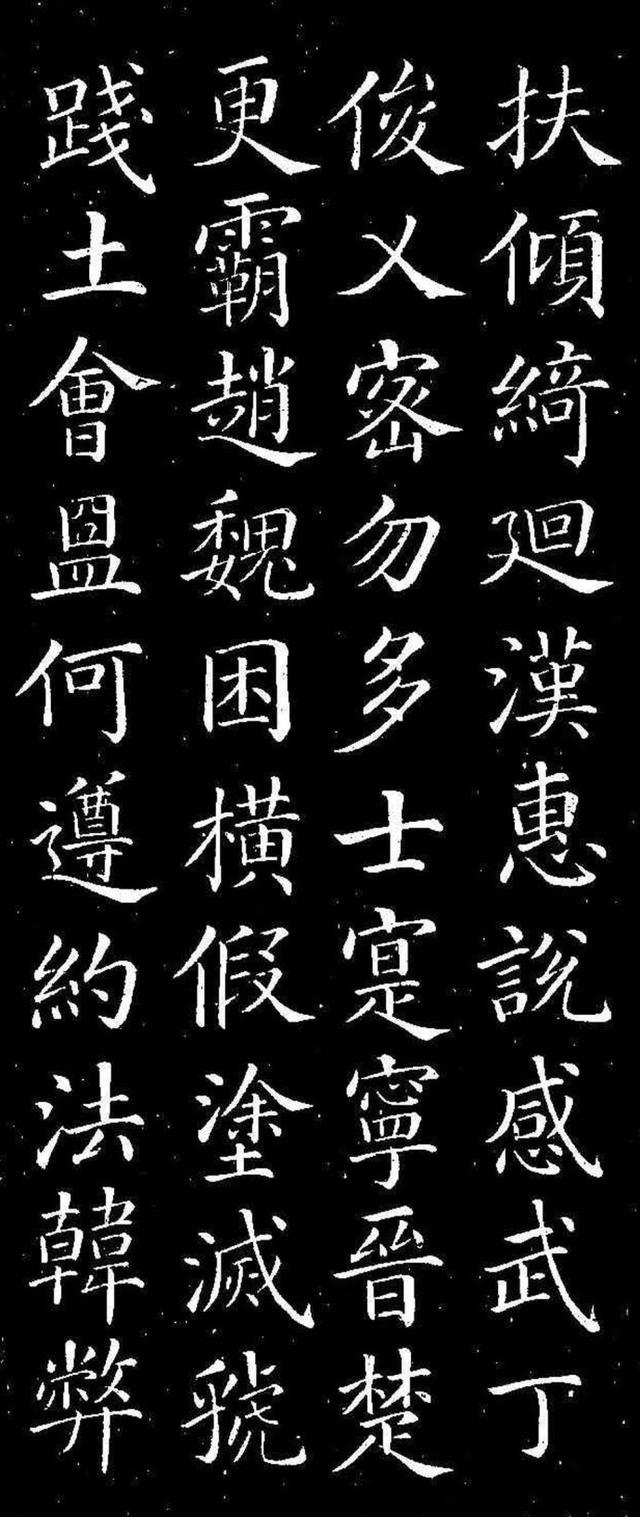 扶傾綺廻漢惠說感武丁
俊乂密勿多士寔寧晉楚
更霸趙魏困橫假塗滅虢
踐土會盟何遵約法韓弊